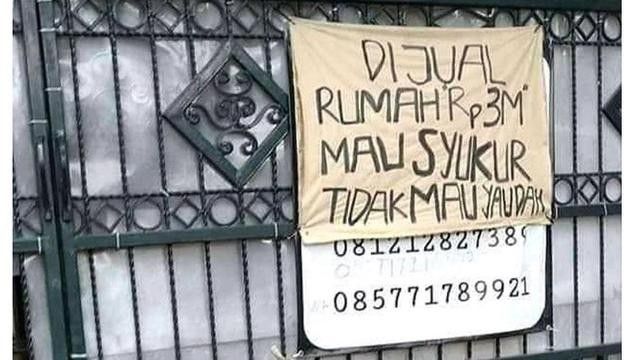 DIJUAL
RUMAH "Rp3M"
MAU SYUKUR
TIDAK MAU YAUDAH
081212827389
085771789921